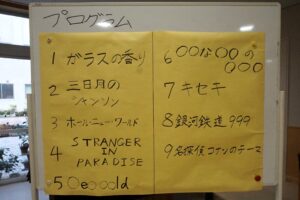 プログラム
1 ガラスの香り
2 三日月の
シャンソン
3 ホール・ニュー・ワールド
4 STRANGER
IN
PARADISE
5
6 〇〇な〇〇の
〇〇〇
7 キセキ
8 銀河鉄道999
9 名探偵コナンのテーマ